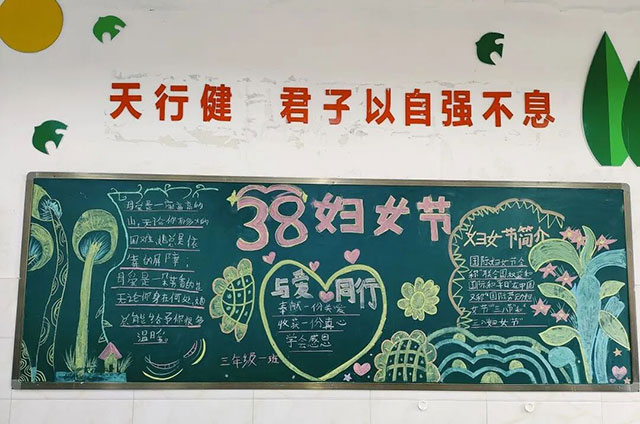 天行健 君子以自强不息
38妇女节
母爱是一座青青的
山,无论你有多大的
困难,她总是你
靠的屏障;
母爱是一朵荷香的
无论你身在何处,她
总能给予你
温暖
与爱同行
奉献一份关爱
收获一份真心
学会感恩
三年级一班
妇女节简介
国际妇女节全
称"联合国妇女权益和
国际和平日"在中国
又称"国际劳动妇
女节""三八节"和
"三八妇女节"